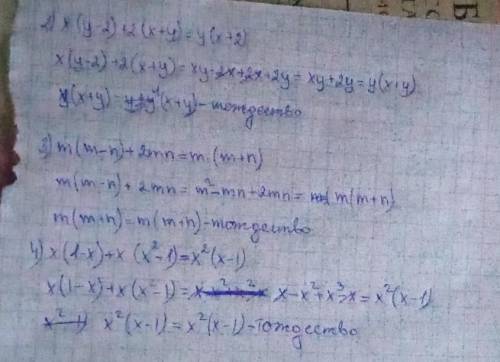 2) x(y-2)+2(x+y)=y(x+2)
x(y-2)+2(x+y)=xy-2x+2x+2y=xy+2y=y(x+y)
y(x+y)= (x+y)-тождество
3) m(m-n)+2mn=m·(m+n)
m(m-n)+2mn=m²-mn+2mn= m(m+n)
m(m+n)=m(m+n)-тождество
4) x(1-x)+x(x²-1)=x²(x-1)
x(1-x)+x(x²-1)= x-x²+x³-x=x²(x-1)
x²(x-1)=x²(x-1)-тождество